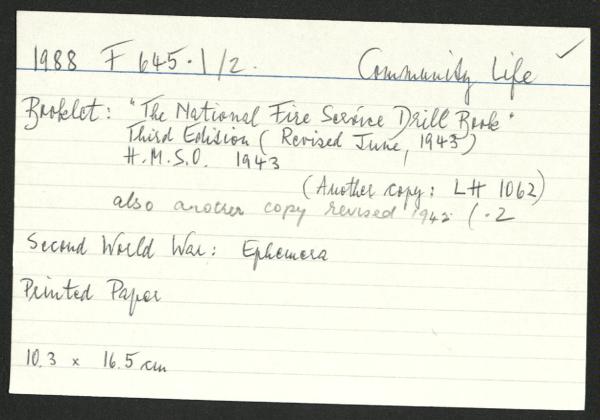 1988 F 645.1/2. Community Life ✓
Booklet: "The National Fire Service Drill Book"
Third Edition (Revised June, 1943)
H.M.S.O. 1943
(Another copy: LH 1062)
also another copy revised 1942 (.2
Second World War: Ephemera
Printed Paper
10.3 x 16.5 cm